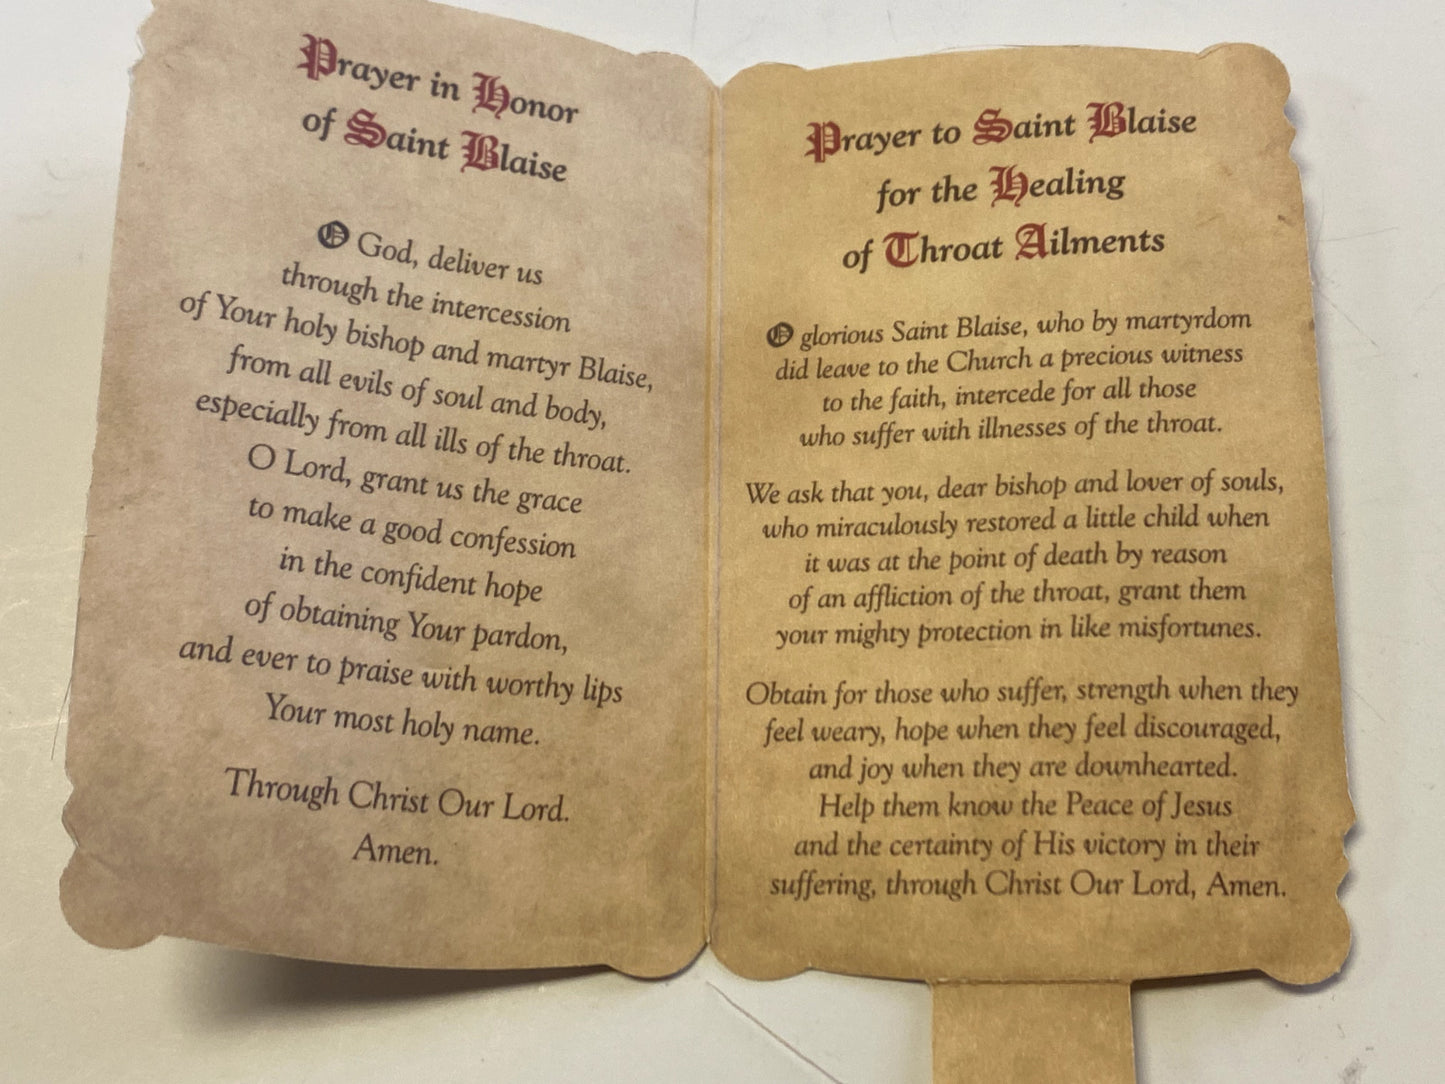 Prayer in Honor
of Saint Blaise
O God, deliver us
through the intercession
of Your holy bishop and martyr Blaise,
from all evils of soul and body,
especially from all ills of the throat.
O Lord, grant us the grace
to make a good confession
in the confident hope
of obtaining Your pardon,
and ever to praise with worthy lips
Your most holy name.
Through Christ Our Lord.
Amen.
Prayer to Saint Blaise
for the Healing
of Throat Ailments
O glorious Saint Blaise, who by martyrdom
did leave to the Church a precious witness
to the faith, intercede for all those
who suffer with illnesses of the throat.
We ask that you, dear bishop and lover of souls,
who miraculously restored a little child when
it was at the point of death by reason
of an affliction of the throat, grant them
your mighty protection in like misfortunes.
Obtain for those who suffer, strength when they
feel weary, hope when they feel discouraged,
and joy when they are downhearted.
Help them know the Peace of Jesus
and the certainty of His victory in their
suffering, through Christ Our Lord, Amen.